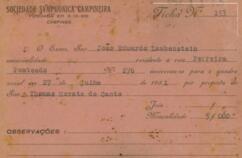 SOCIEDADE SYMPHONICA CAMPINEIRA
CAMPINAS
Ficha N. 153
O Exmo. Snr. João Eduardo Laubenstein
nacionalidade residente á rua Ferreira
Penteado Nº 276 inscreveu-se para o quadro
social em 27 de Julho de 193 por proposta de
Snr. Thomaz Morato do Canto
Joia $
Mensalidade 5$000
OBSERVAÇÕES